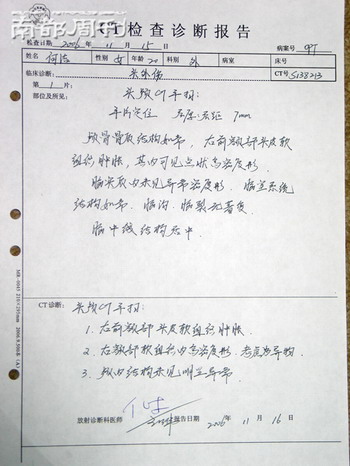 南都周刊
CT检查诊断报告
检查日期 2006年 11月 15日 病案号 9T
姓名 何洁 性别 女 年龄 20 科别 外 病室 床号
临床诊断: 头外伤 CT号 S138213
第 1 片:
部位及所见: 头颅CT平扫:
平扫定位 层厚层距 7mm
颅骨骨板结构如常, 右前额部头皮软
组织肿胀, 其内可见点状高密度影
脑实质内未见异常密度影. 脑室系统
结构如常. 脑沟. 脑裂无著变
脑中线结构居中.
CT诊断: 头颅CT平扫:
1. 右前额部头皮软组织肿胀.
2. 右额部软组织内高密度影. 考虑为异物
3. 颅内结构未见明显异常.
放射诊断科医师 报告日期 2006年 11月 16日